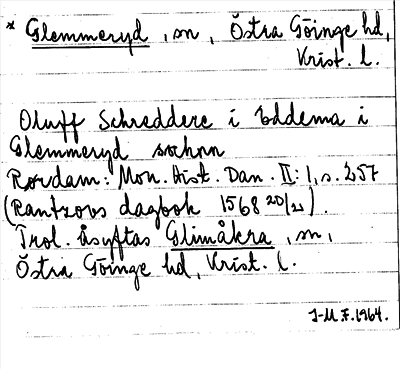 * Glemmeryd, sn, Östra Göinge hd,
Krist. l.
Oluff Schreddere i Eddema i
Glemmeryd sochnn
Rørdam: Mon. Hist. Dan. II: 1, s. 257
(Rantzovs dagbok 1568 20/21).
Trol. åsyftas Glimåkra, sn,
Östra Göinge hd, Krist. l.
J-M F. 1964.